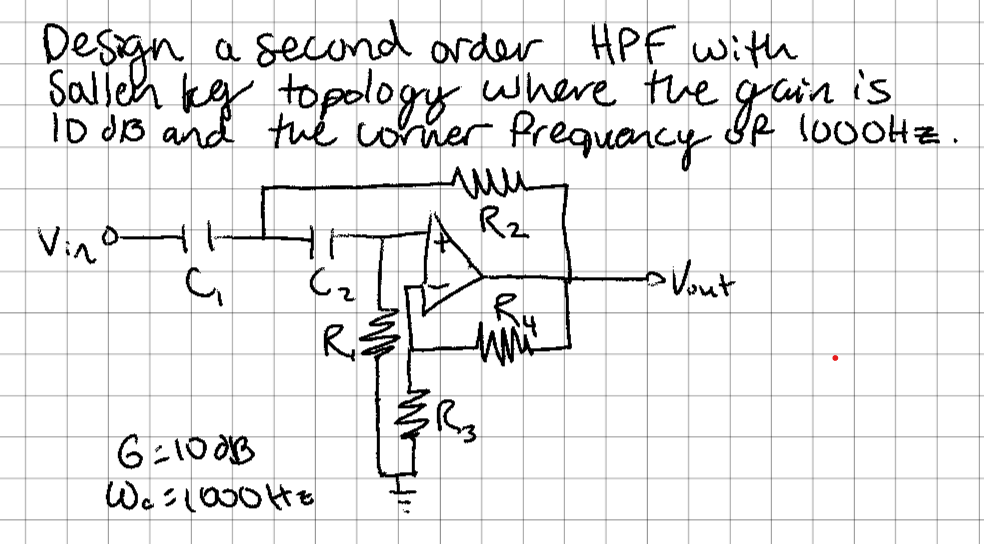 Design a second order HPF with
Sallen key topology where the gain is
10 dB and the corner frequency of 1000Hz.
R2
Vin
+
C1
C2
-
Vout
R4
R1
R3
G=10dB
Wc=1000Hz